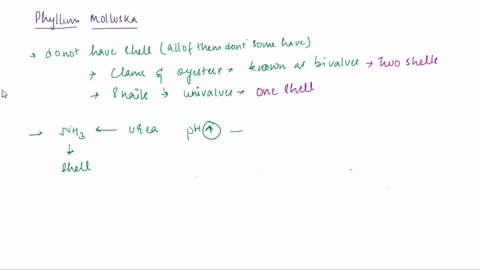 Phyllum Molluska
→ donot have shell (all of them dont some have)
→ Clams & oyesters → known as bivalves → Two shells
→ Snails → univalves → One shell.
→ NH3 ← urea pH ↑ —
↓
shell